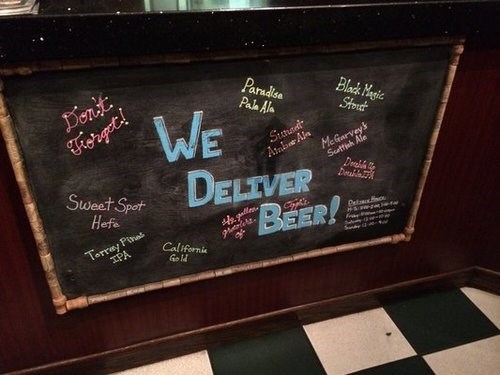 Don't
Forget!
WE
DELIVER
BEER!
Paradise
Pale Ale
Black Magic
Stout
Sunset
Amber Ale
McGarvey's
Scottish Ale
Double Up
Double IPA
Sweet Spot
Hefe
Torrey Pines
IPA
California
Gold
of